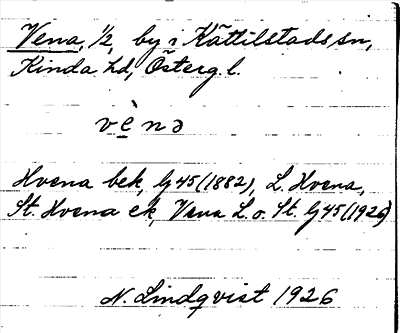 Vena, 1/2, by i Kättilstads sn,
Kinda hd, Österg. l.
vènə
Hvena bek, Gj 45 (1882), L. Hvena,
St. Hvena ek, Vena L. o. St. Gj 45 (1926)
N. Lindqvist 1926